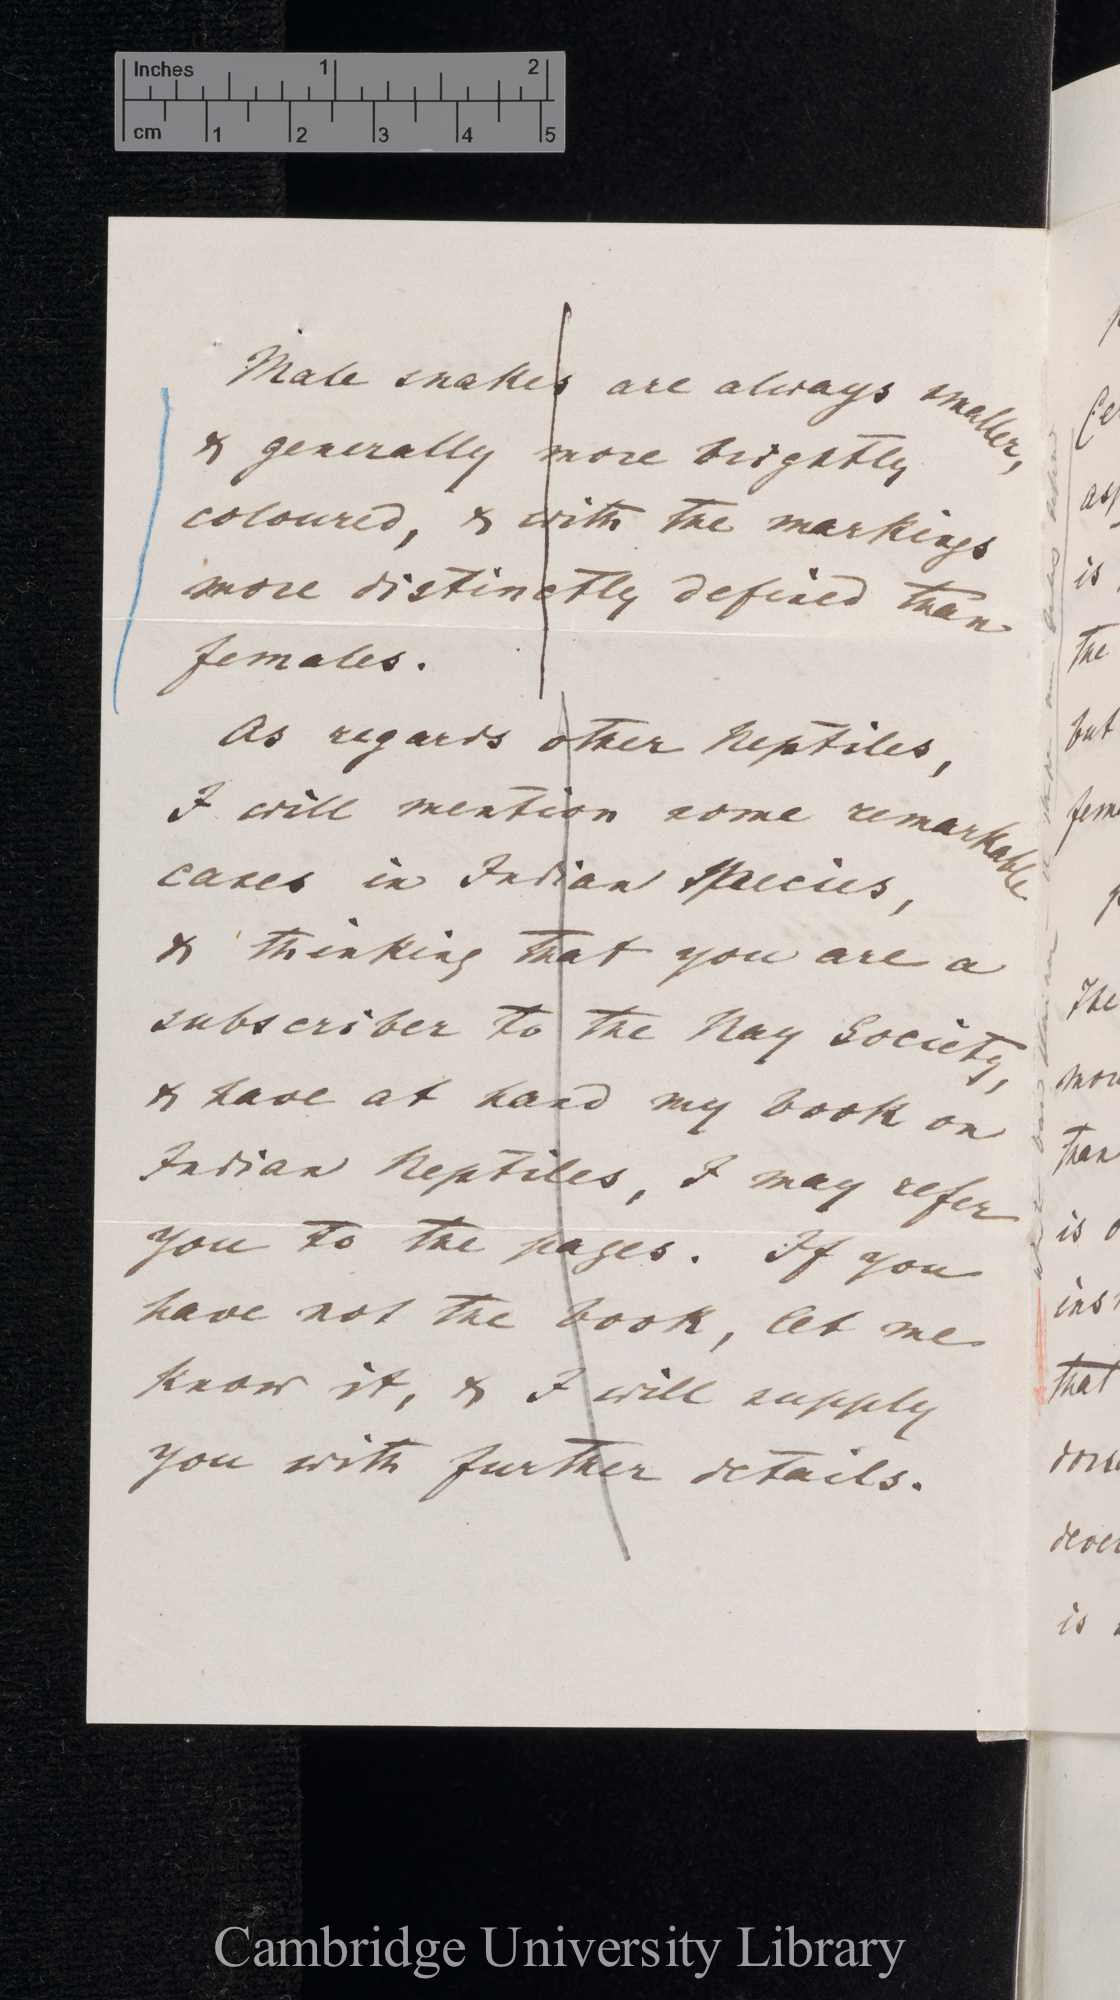 Inches 1 2
cm 1 2 3 4 5
Male snakes are always smaller,
& generally more brightly
coloured, & with the markings
more distinctly defined than
females.
As regards other Reptiles,
I will mention some remarkable
cases in Indian species,
& thinking that you are a
subscriber to the Ray Society,
& have at hand my book on
Indian Reptiles, I may refer
you to the pages. If you
have not the book, let me
know it, & I will supply
you with further details.
is
the
but
The
than
is
that
is
Cambridge University Library